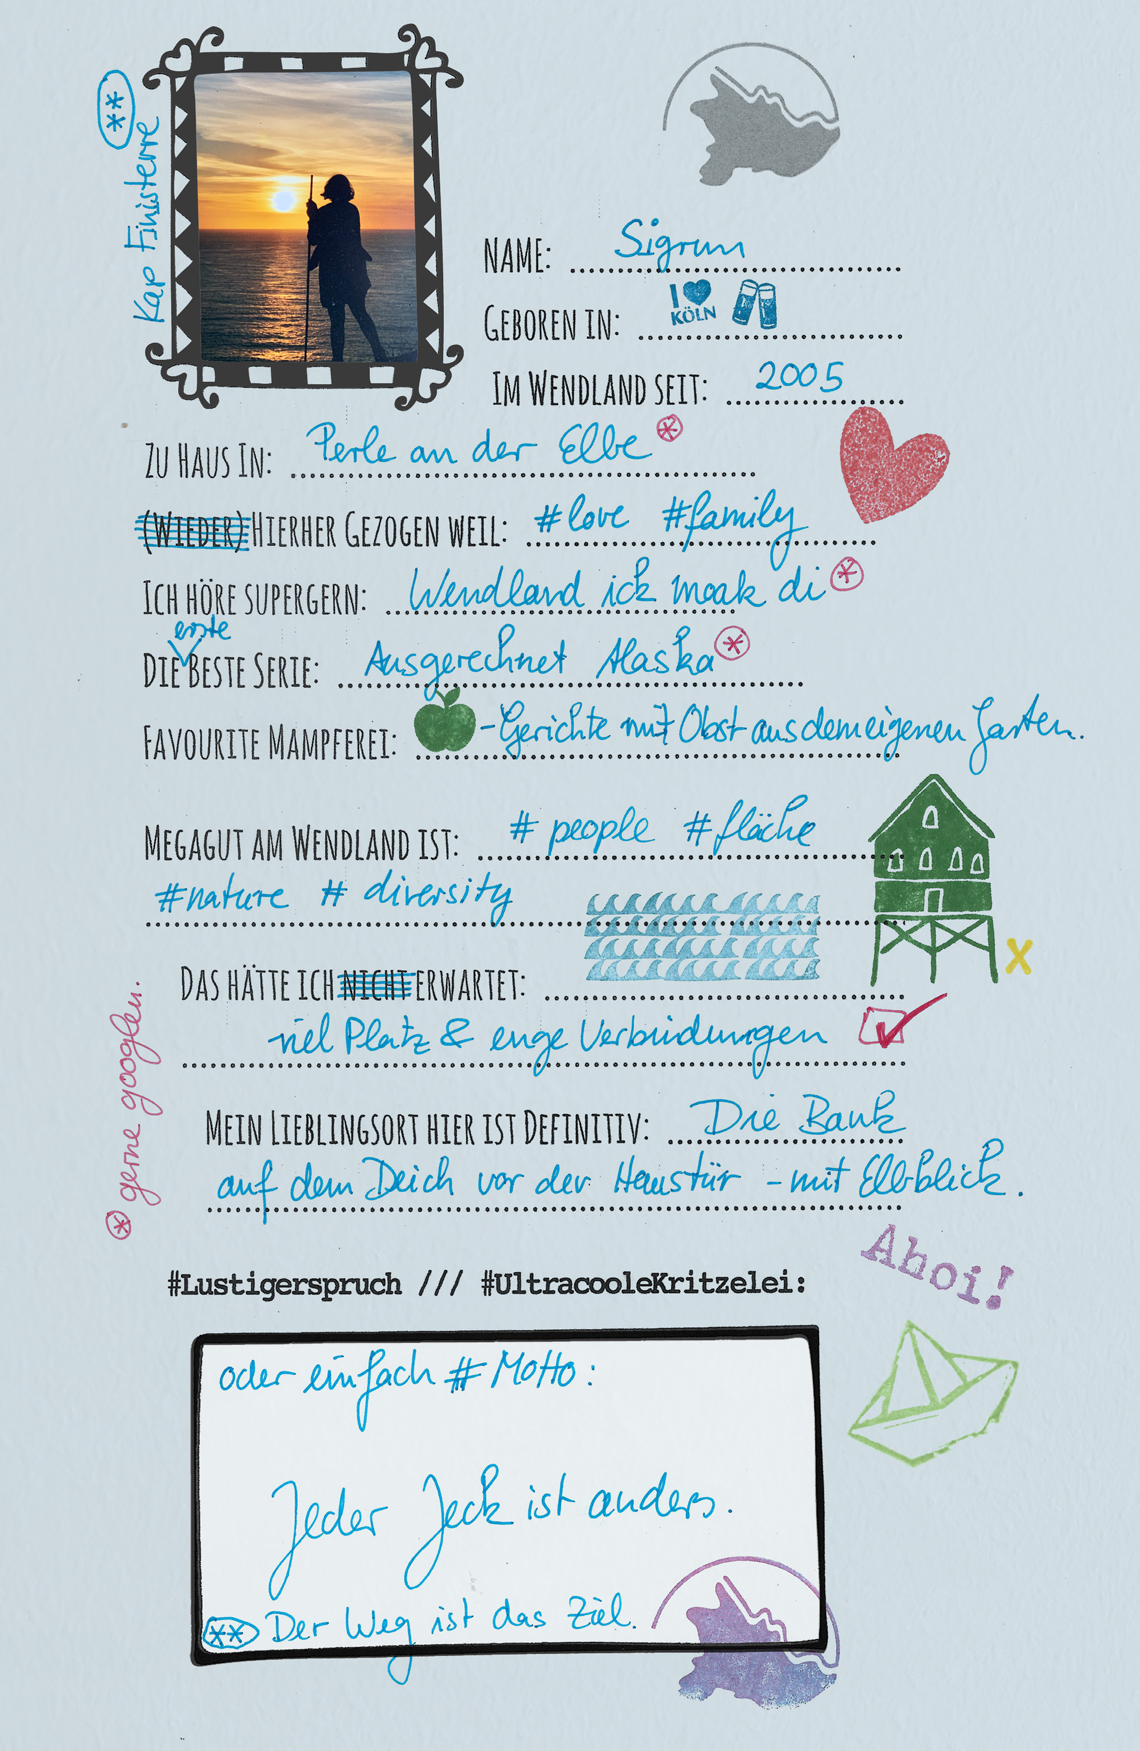 ** Kap Finisterre
NAME: Sigrun
GEBOREN IN: I ♥ KÖLN
IM WENDLAND SEIT: 2005
ZU HAUS IN: Perle an der Elbe *
(WIEDER) HIERHER GEZOGEN WEIL: #love #family
ICH HÖRE SUPERGERN: Wendland ick moak di *
erste
DIE BESTE SERIE: Ausgerechnet Alaska *
FAVOURITE MAMPFEREI: -Gerichte mit Obst aus dem eigenen Garten.
MEGAGUT AM WENDLAND IST: # people #fläche
#nature # diversity
X
DAS HÄTTE ICH NICHT ERWARTET:
viel Platz & enge Verbindungen
* gerne googlen.
MEIN LIEBLINGSORT HIER IST DEFINITIV: Die Bank
auf dem Deich vor der Haustür - mit Elbblick.
Ahoi!
#Lustigerspruch /// #UltracooleKritzelei:
oder einfach # Motto:
Jeder Jeck ist anders.
** Der Weg ist das Ziel.